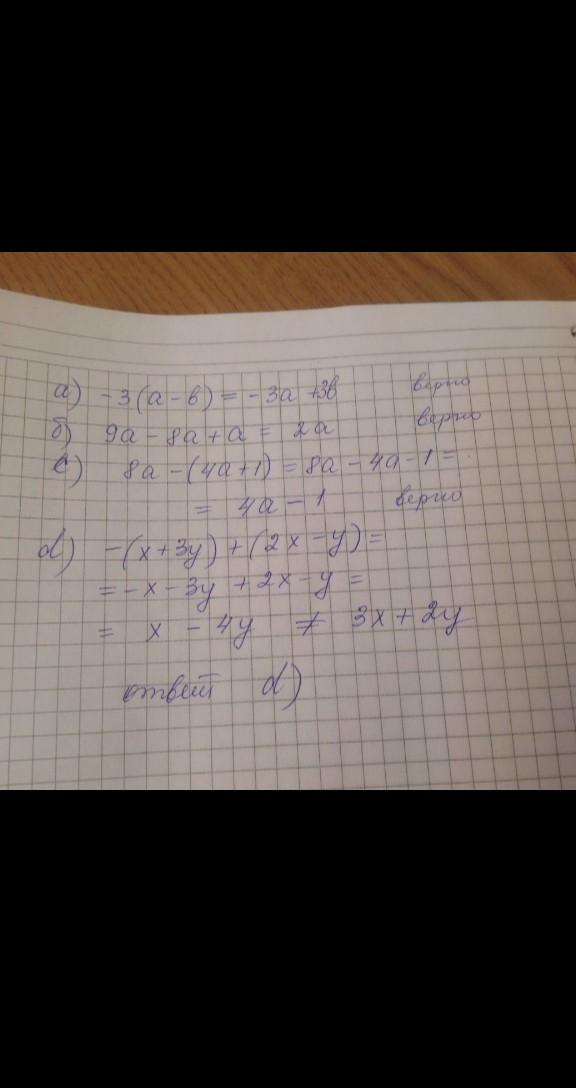 а) -3(a-в) = -3a +3в верно
б) 9a - 8a + a = 2a верно
c) 8a - (4a+1) = 8a - 4a - 1 =
= 4a - 1 верно
d) -(x+3y) + (2x-y) =
= -x - 3y + 2x - y =
= x - 4y ≠ 3x + 2y
ответ d)